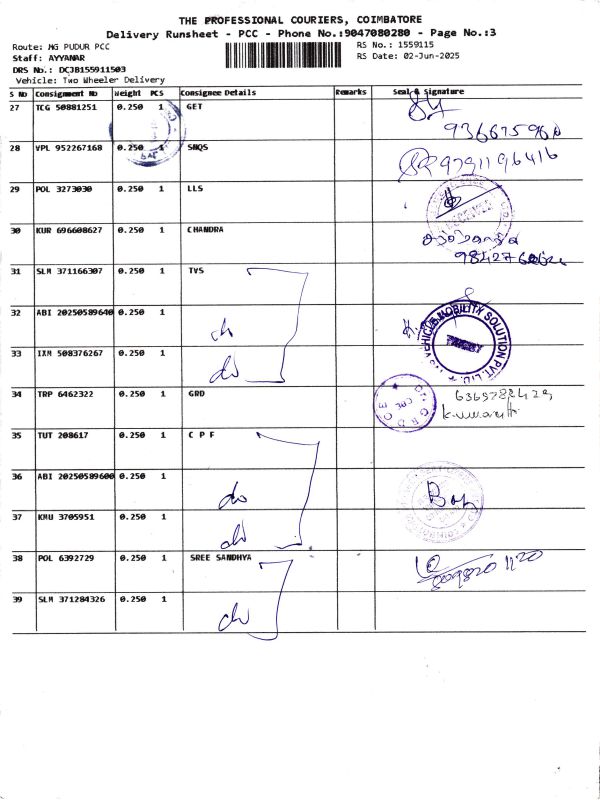 THE PROFESSIONAL COURIERS, COIMBATORE
Delivery Runsheet - PCC - Phone No.:9047080280 - Page No.:3
Route: MG PUDUR PCC RS No.: 1559115
Staff: AYYANAR RS Date: 02-Jun-2025
DRS No.: DCJB155911503
Vehicle: Two Wheeler Delivery
S No Consignment No Weight PCS Consignee Details Remarks Seal & Signature
27 TCG 50881251 0.250 1 GET
28 VPL 952267168 0.250 1 SNQS 9791196416
29 POL 3273030 0.250 1 LLS
RECEIVED
30 KUR 696608627 0.250 1 CHANDRA
31 SLM 371166307 0.250 1 TVS
32 ABI 20250589640 0.250 1 do
TVS VEHICLE MOBILITY SOLUTION PVT. LTD.
33 IXM 508376267 0.250 1 do
34 TRP 6462322 0.250 1 GRD
35 TUT 208617 0.250 1 C P F
36 ABI 20250589600 0.250 1 do
37 KMU 3705951 0.250 1 do
38 POL 6392729 0.250 1 SREE SANDHYA
39 SLM 371284326 0.250 1 do